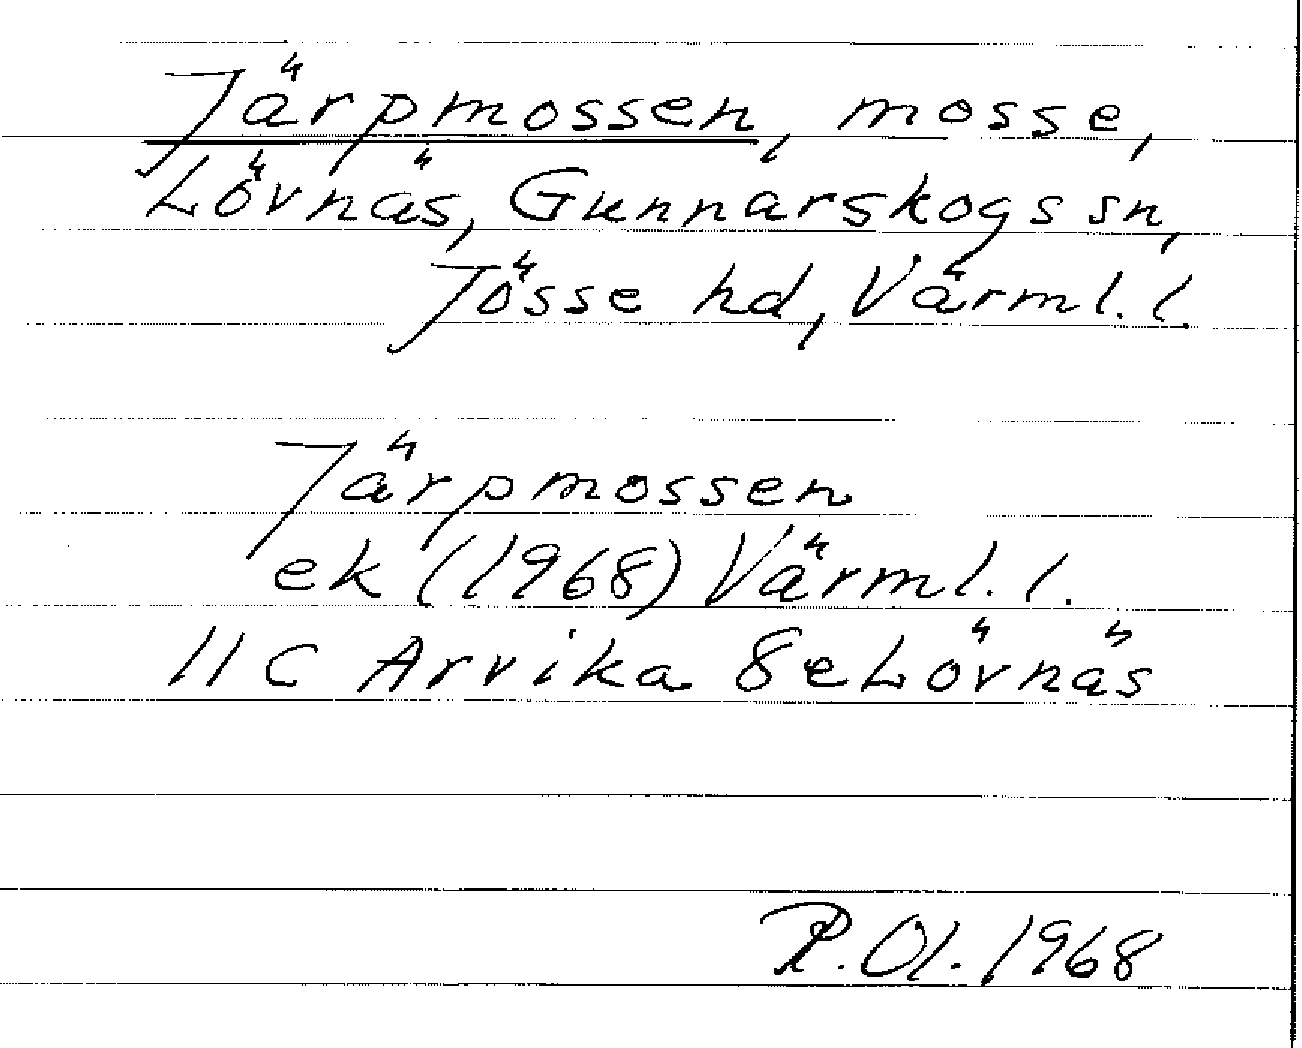 Järpmossen, mosse,
Lövnäs, Gunnarskogs sn,
Jösse hd, Värml. l.
Järpmossen
ek (1968) Värml. l.
11 C Arvika 8e Lövnäs
R. Ol. 1968